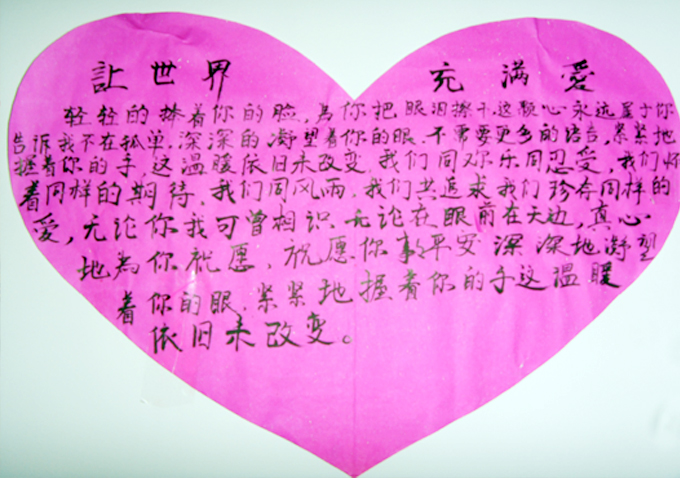 让世界 充满爱
轻轻的捧着你的脸,為你把眼泪擦干.这颗心永远呈于你
告诉我不在孤单,深深的凝望着你的眼.不需要更多的语言,紧紧地
握着你的手,这温暖依旧未改变,我们同欢乐同忍受,我们怀
着同样的期待,我们同风雨,我们共追求我们珍存同样的
爱,无论你我可曾相识无论在眼前在天边,真心
地為你祝愿,祝愿你平安深深地凝望
着你的眼.紧紧地握着你的手这温暖
依旧未改变。